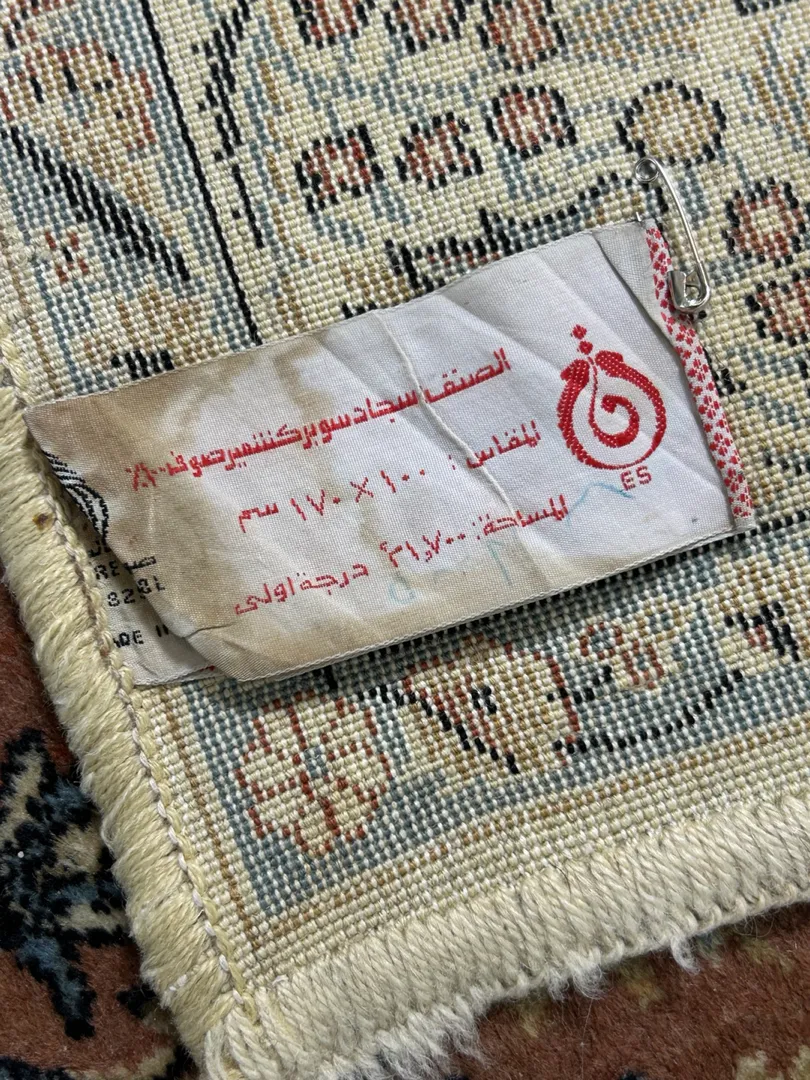 الصنف: سجاد سوبر كشمير صوف ١٠٠٪
المقاس: ١٠٠ × ١٧٠ سم
المساحة: ١,٧٠٠م٢ درجة اولى
ES